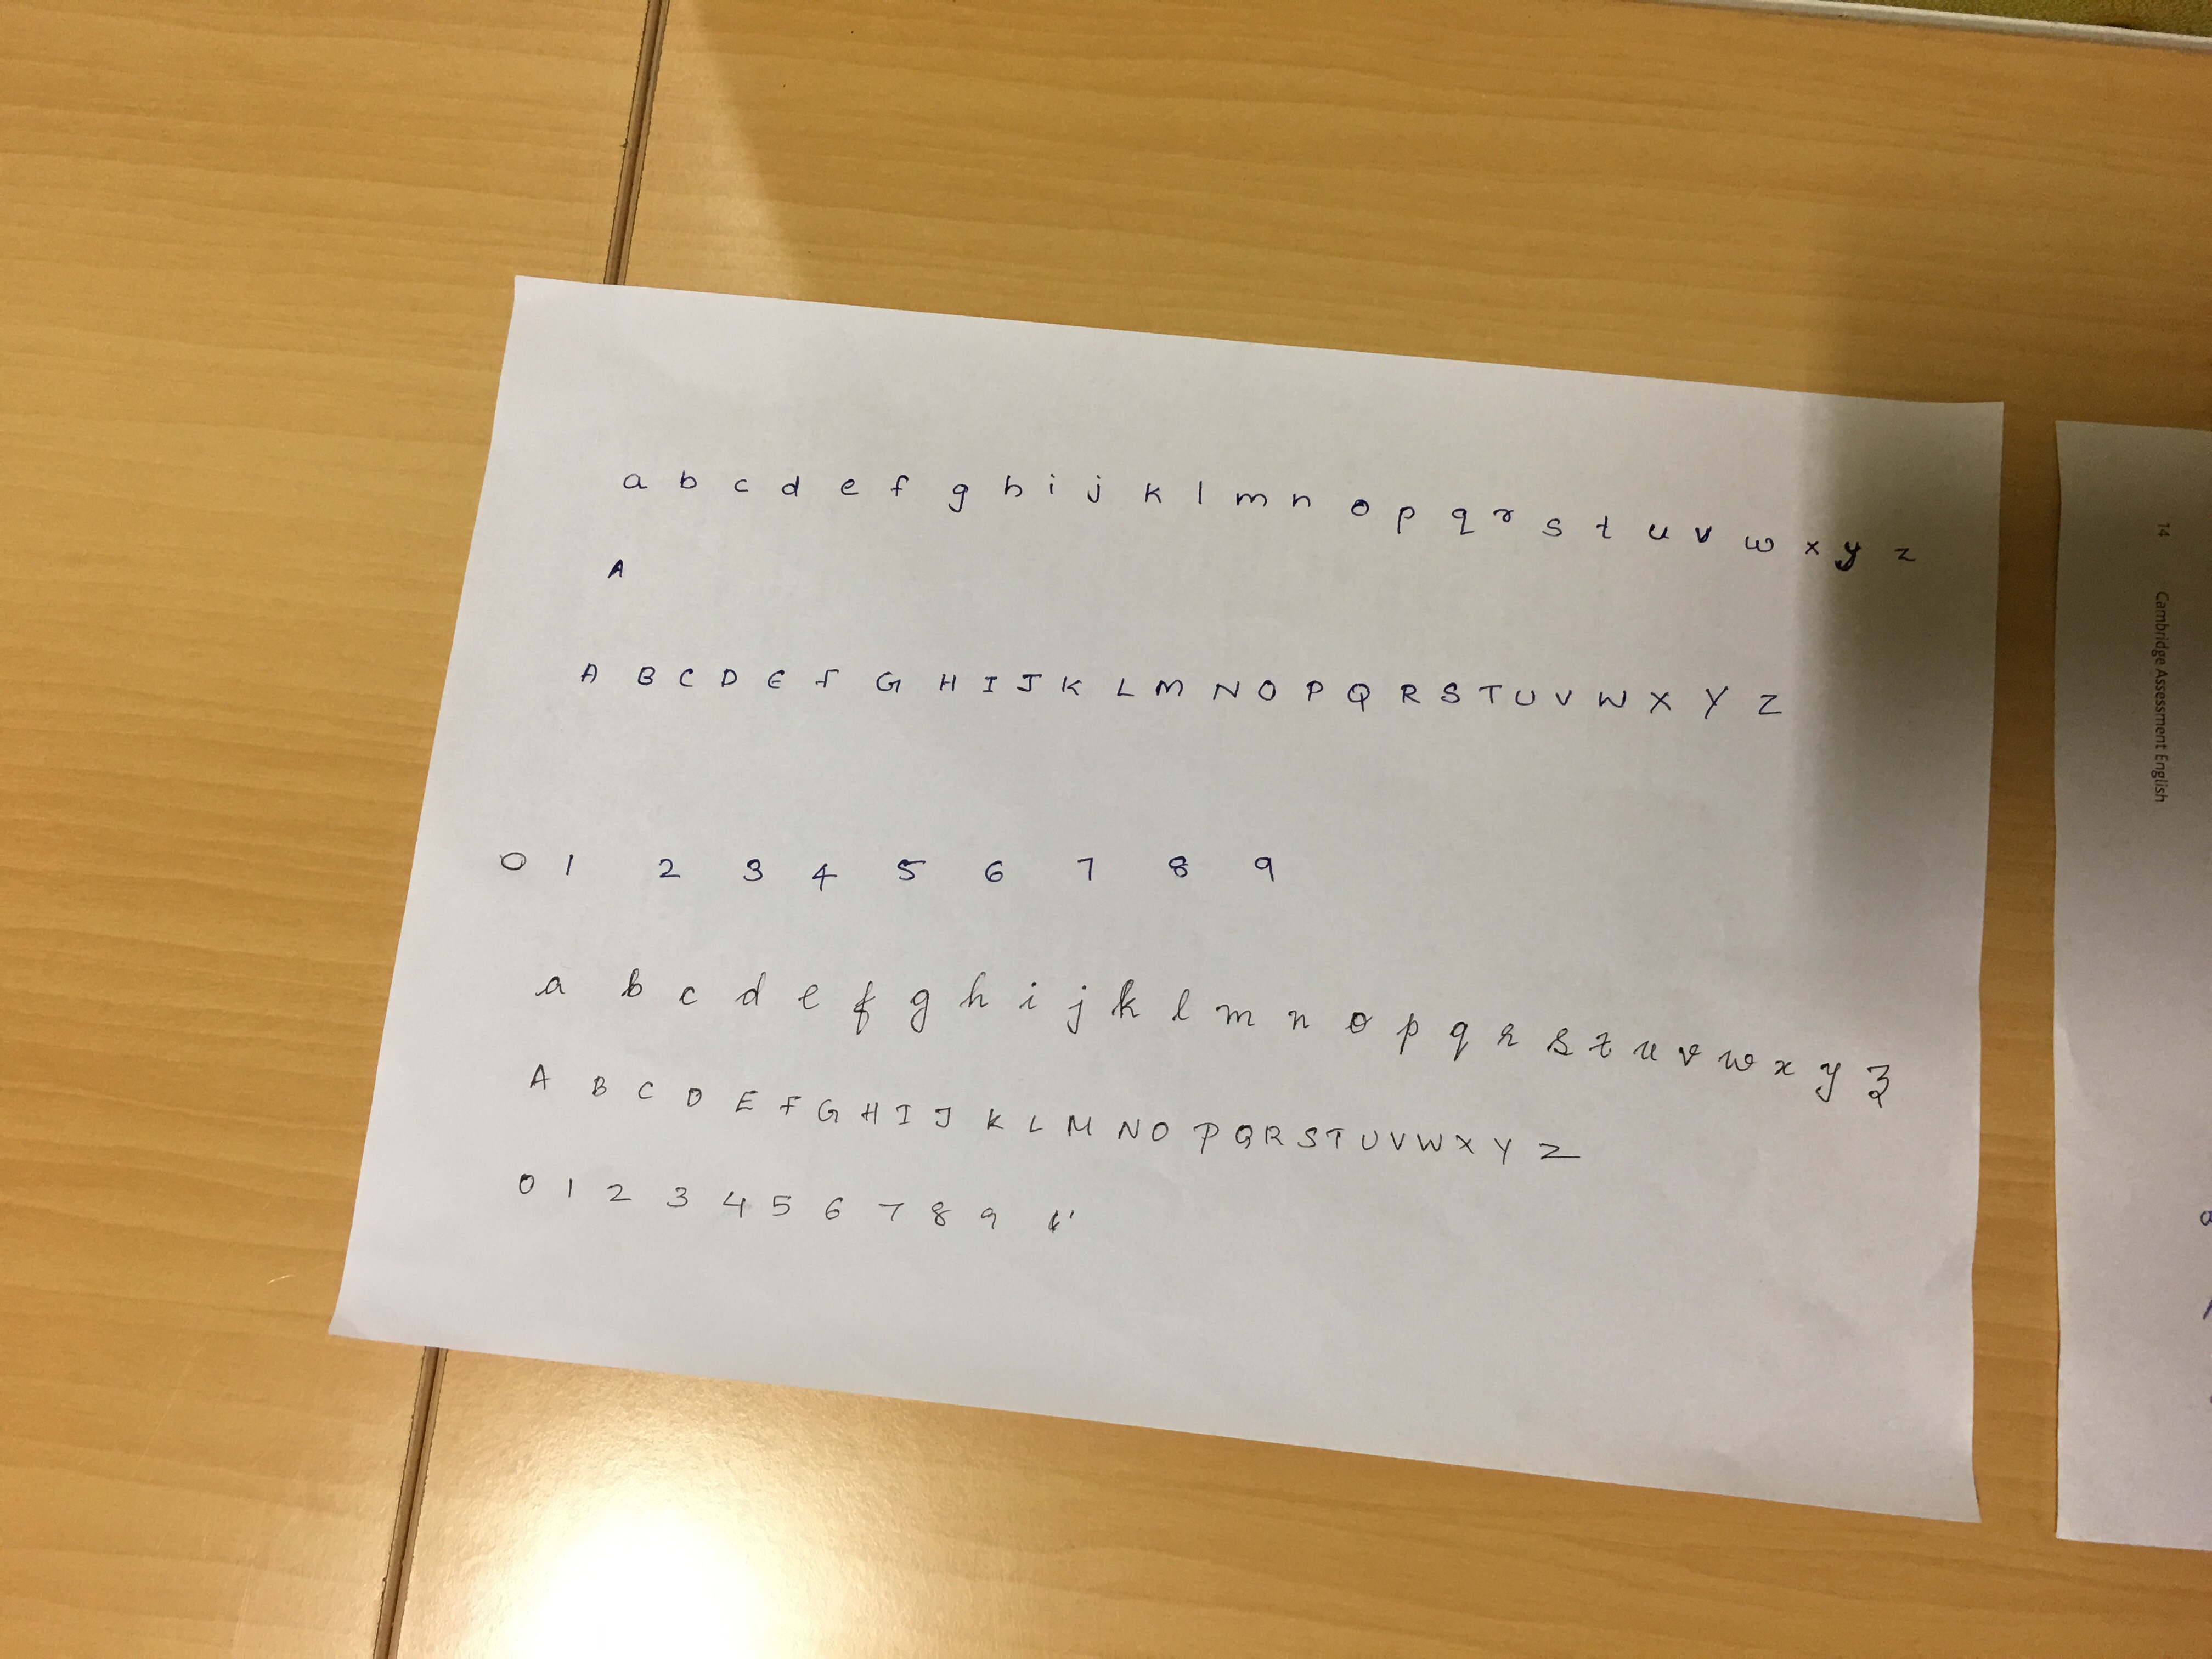 a b c d e f g h i j k l m n o p q r s t u v w x y z
A
A B C D E F G H I J K L M N O P Q R S T U V W X Y Z
0 1 2 3 4 5 6 7 8 9
a b c d e f g h i j k l m n o p q r s t u v w x y z
A B C D E F G H I J K L M N O P Q R S T U V W X Y Z
0 1 2 3 4 5 6 7 8 9
14 Cambridge Assessment English